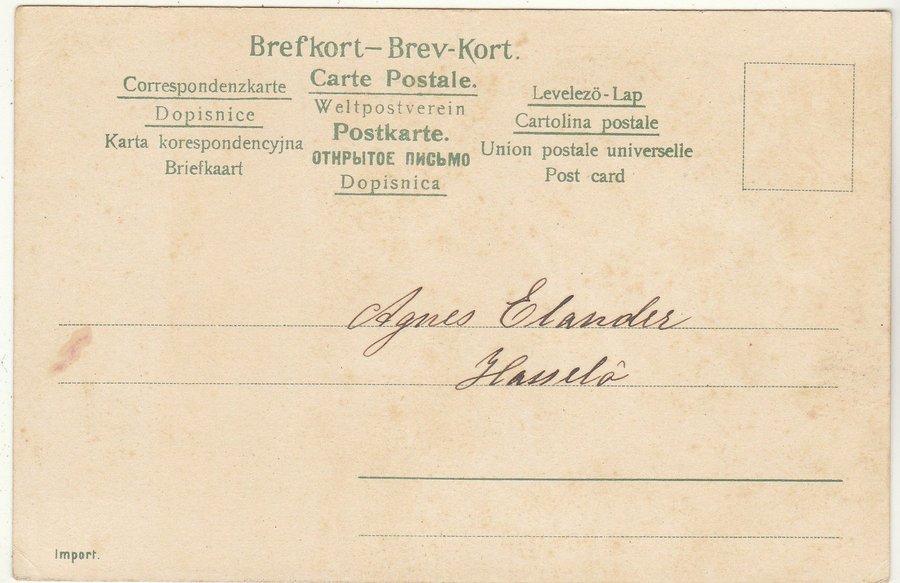 Brefkort–Brev-Kort.
Correspondenzkarte
Dopisnice
Karta korespondencyjna
Briefkaart
Carte Postale.
Weltpostverein
Postkarte.
ОТКРЫТОЕ ПИСЬМО
Dopisnica
Levelezö-Lap
Cartolina postale
Union postale universelle
Post card
Agnes Elander
Hasselö
Import.